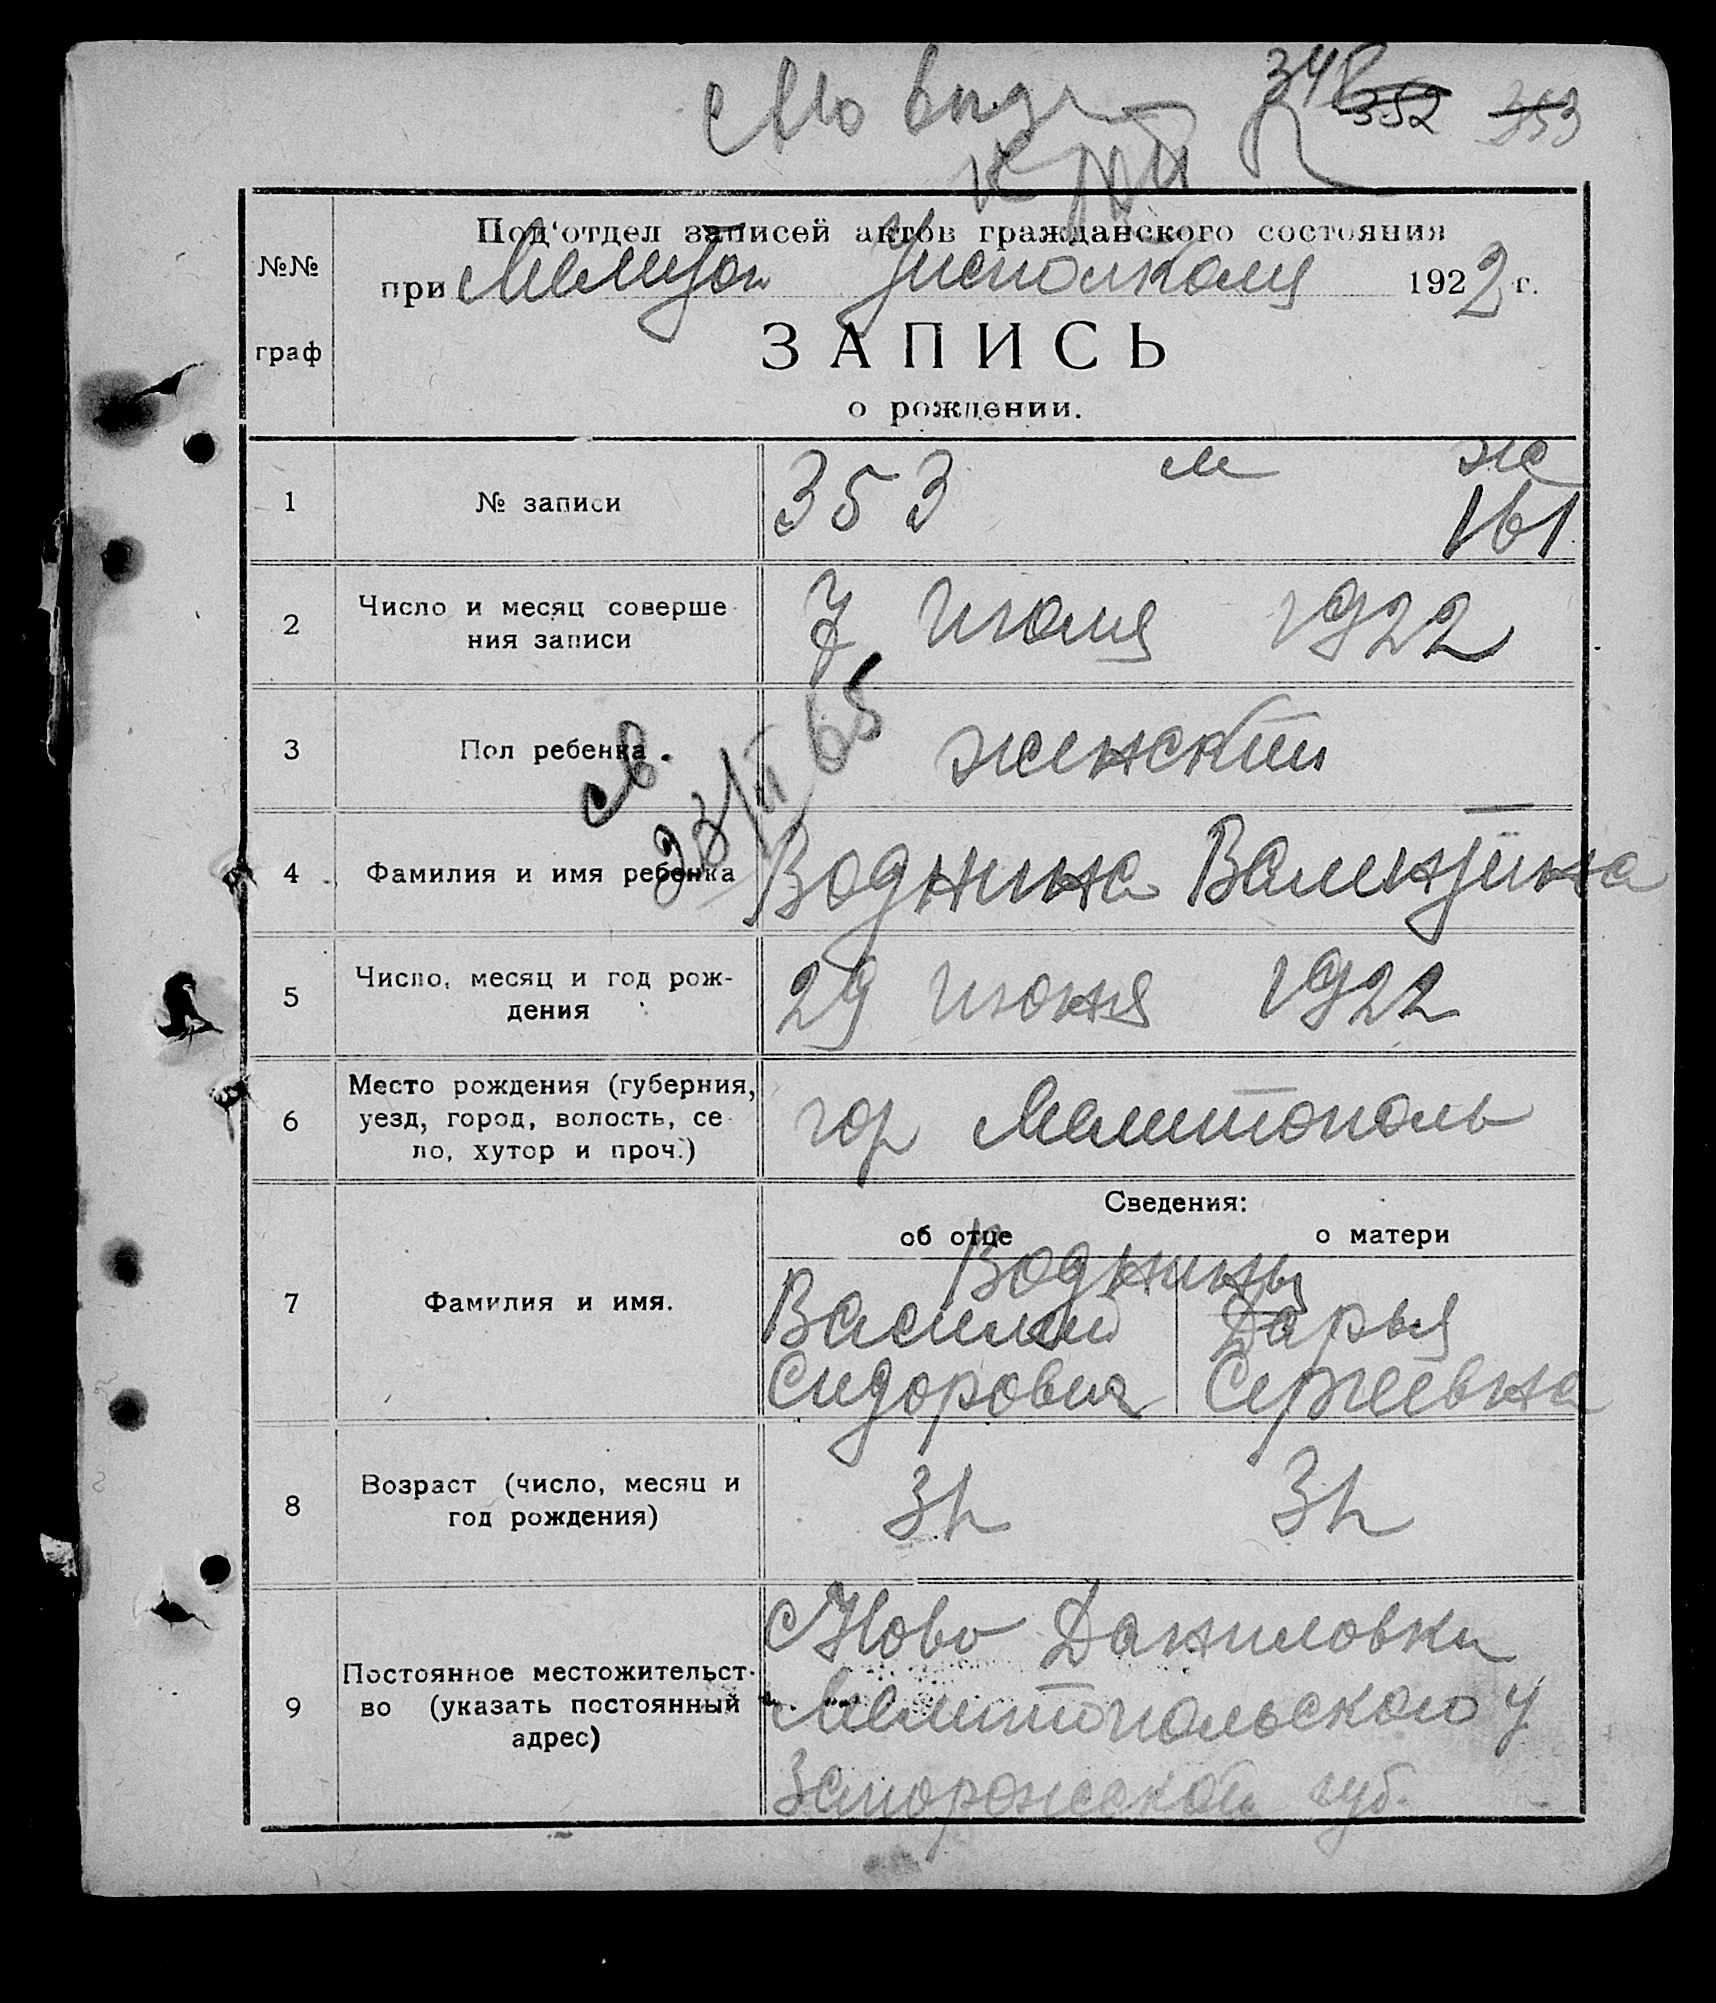 348 352 353
Под'отдел записей актов гражданского состояния
№№
при Исполкома 1922 г.
граф
ЗАПИСЬ
о рождении.
м ж
1 № записи 353 161
2 Число и месяц соверше
ния записи
7 июля 1922
3 Пол ребенка. женский
св
23/II 65
4 Фамилия и имя ребенка Воднина Валентина
5 Число, месяц и год рож-
дения
29 июня 1922
6 Место рождения (губерния,
уезд, город, волость, се
ло, хутор и проч.)
гор Мелитополь
Сведения:
об отце о матери
Воднины
7 Фамилия и имя.
Василий Дарья
Сидорович Сергеевна
8 Возраст (число, месяц и
год рождения)
9 Постоянное местожительст-
во (указать постоянный
адрес)
Ново Даниловки
Мелитопольского у
Запорожской губ.